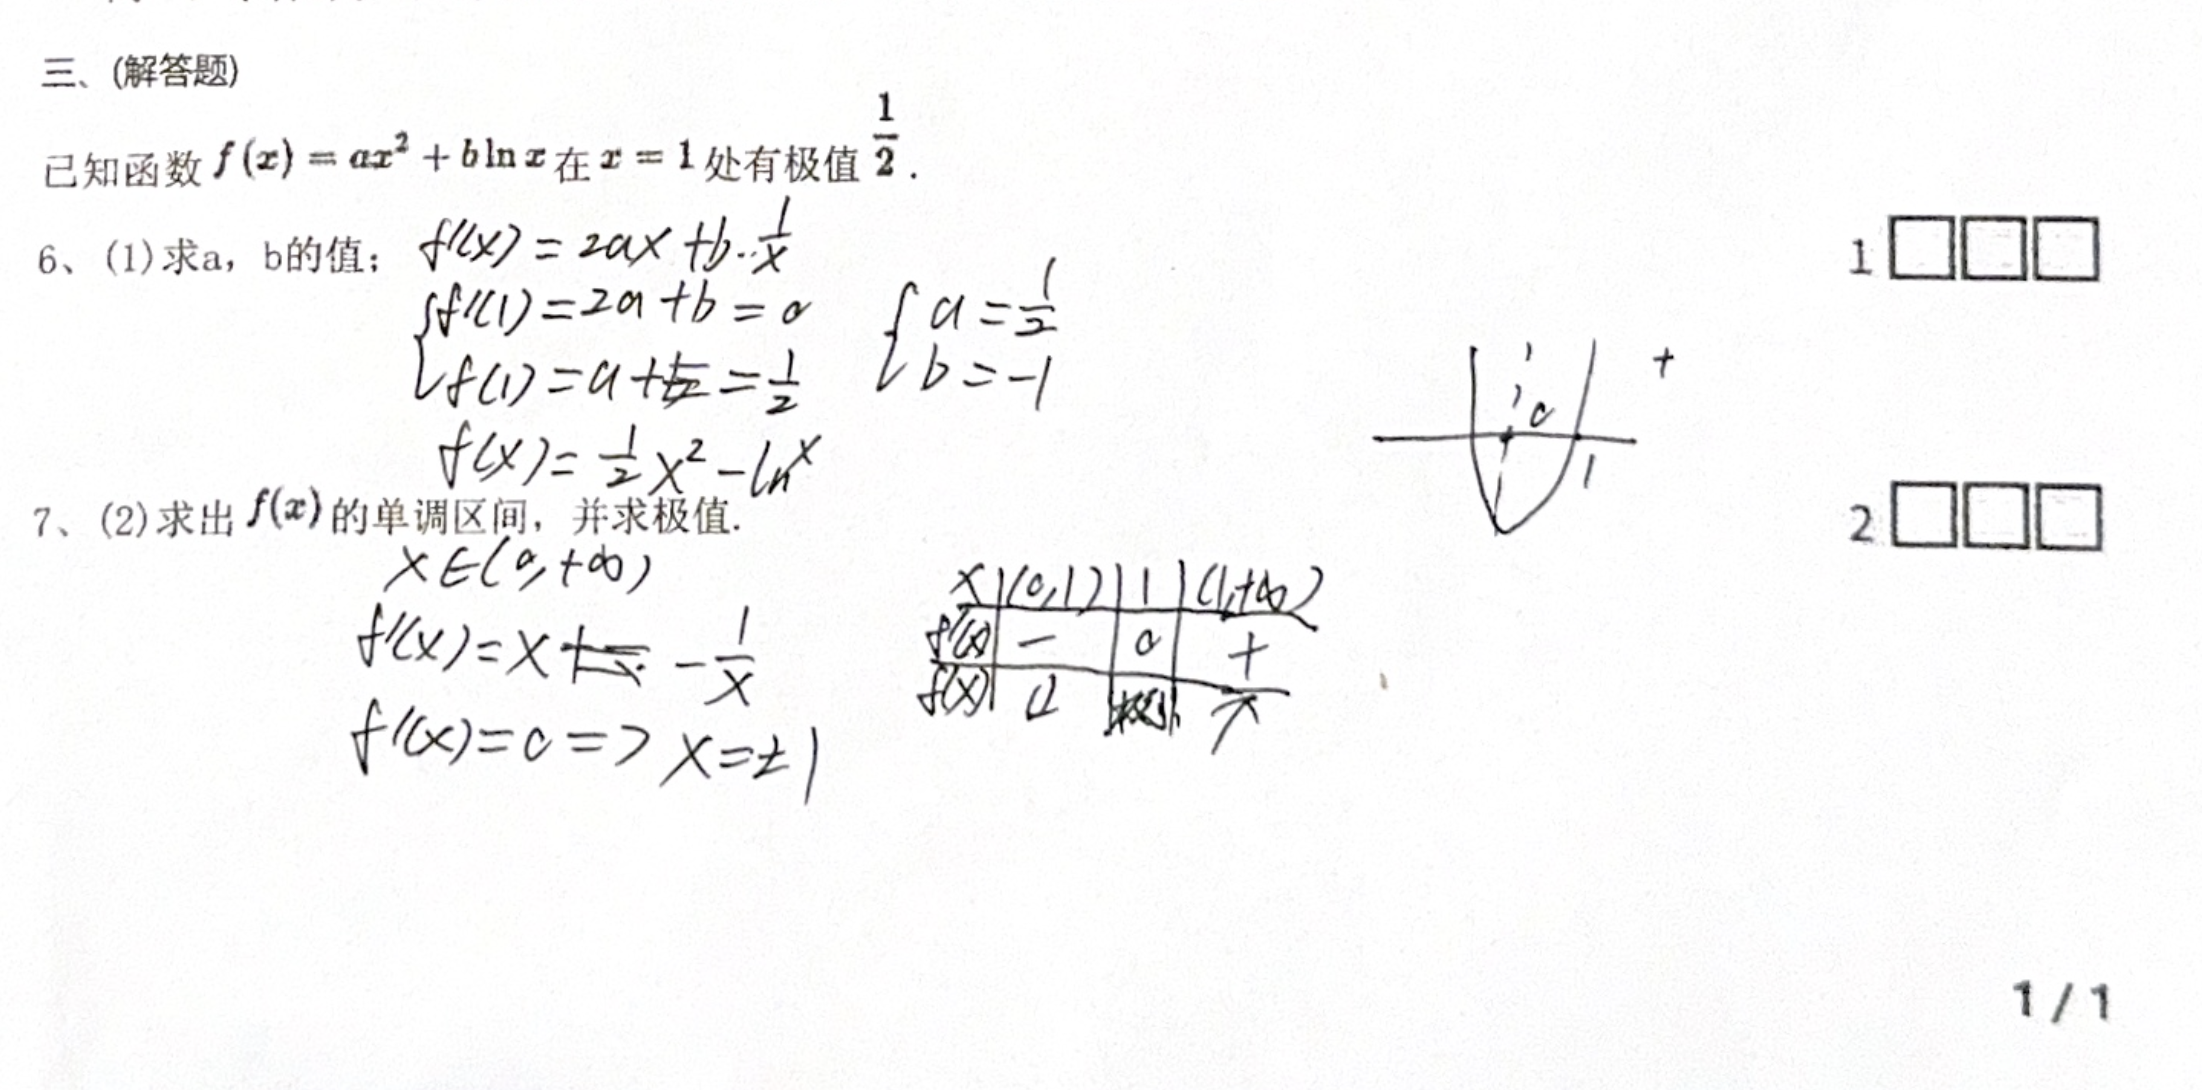 三、(解答题)
已知函数 f(x) = ax² + b ln x 在 x = 1 处有极值 1/2 .
6、(1)求a，b的值； f'(x) = 2ax + b · 1/x
{ f'(1) = 2a + b = 0 { a = 1/2
f(1) = a = 1/2 b = -1
f(x) = 1/2 x² - ln x
7、(2)求出 f(x) 的单调区间，并求极值.
x ∈ (0, +∞)
f'(x) = x - 1/x
f'(x) = 0 => x = ±1
x | (0,1) | 1 | (1,+∞)
f'(x) | - | 0 | +
f(x) | ↘ | | ↗
0
1
+
1
2
1 / 1